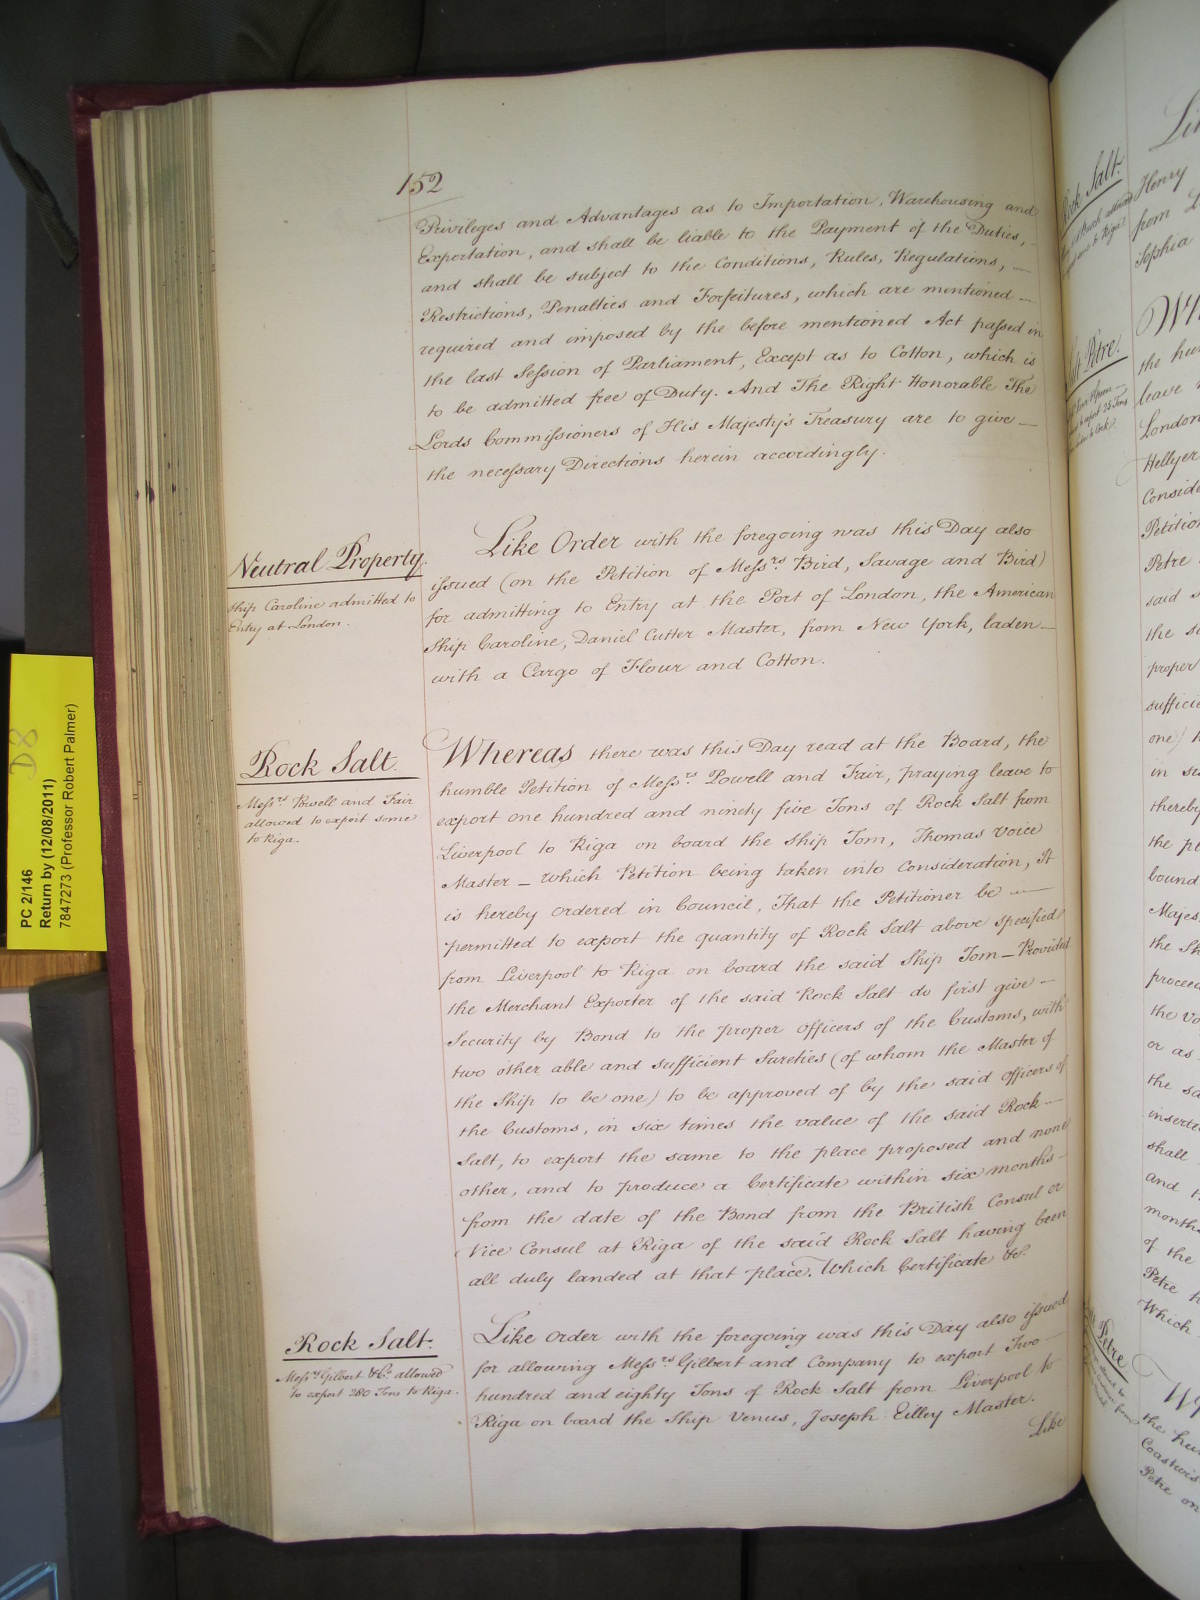 152
Privileges and Advantages as to Importation, Warehousing and
Exportation, and shall be liable to the Payment of the Duties,
and shall be subject to the Conditions, Rules, Regulations, —
Restrictions, Penalties and Forfeitures, which are mentioned —
required and imposed by the before mentioned Act passed in
the last Session of Parliament, Except as to Cotton, which is
to be admitted free of Duty. And The Right Honorable The
Lords Commissioners of His Majesty's Treasury are to give —
the necessary Directions herein accordingly.
Neutral Property
Ship Caroline admitted to
Entry at London.
Like Order with the foregoing was this Day also
issued (on the Petition of Messrs. Bird, Savage and Bird)
for admitting to Entry at the Port of London, the American
Ship Caroline, Daniel Cutter Master, from New York, laden —
with a Cargo of Flour and Cotton.
Rock Salt.
Messrs Powell and Fair
allowed to export some
to Riga.
Whereas there was this Day read at the Board, the
humble Petition of Messrs. Powell and Fair, praying leave to
export one hundred and ninety five Tons of Rock Salt from
Liverpool to Riga on board the Ship Tom, Thomas Voice
Master — Which Petition being taken into Consideration, It
is hereby Ordered in Council, That the Petitioner be —
permitted to export the quantity of Rock Salt above specified
from Liverpool to Riga on board the said Ship Tom — Provided
the Merchant Exporter of the said Rock Salt do first give —
Security by Bond to the proper Officers of the Customs, with
two other able and sufficient Sureties (of whom the Master of
the Ship to be one) to be approved of by the said Officers of
the Customs, in six times the value of the said Rock —
Salt, to export the same to the place proposed and none
other, and to produce a Certificate within six months —
from the date of the Bond from the British Consul or
Vice Consul at Riga of the said Rock Salt having been
all duly landed at that place. Which Certificate &c.
Rock Salt.
Messrs Gilbert & Co. allowed
to export 280 Tons to Riga.
Like Order with the foregoing was this Day also issued
for allowing Messrs Gilbert and Company to export Two —
hundred and eighty Tons of Rock Salt from Liverpool to
Riga on board the Ship Venus, Joseph Eilley Master.
Like
D8
PC 2/146
Return by (12/08/2011)
7847273 (Professor Robert Palmer)
Rock Salt.
Salt Petre.
Henry
from
Sophia
the hum
leave
London
Hellyer
Conside
Petition
Petre
said
the
proper
sufficie
one)
in
thereby
the
bound
Majes
the
proceed
the
or as
the
inserte
shall
and
months
of the
Petre
Which
Petre
the
Coastwis
Petre on